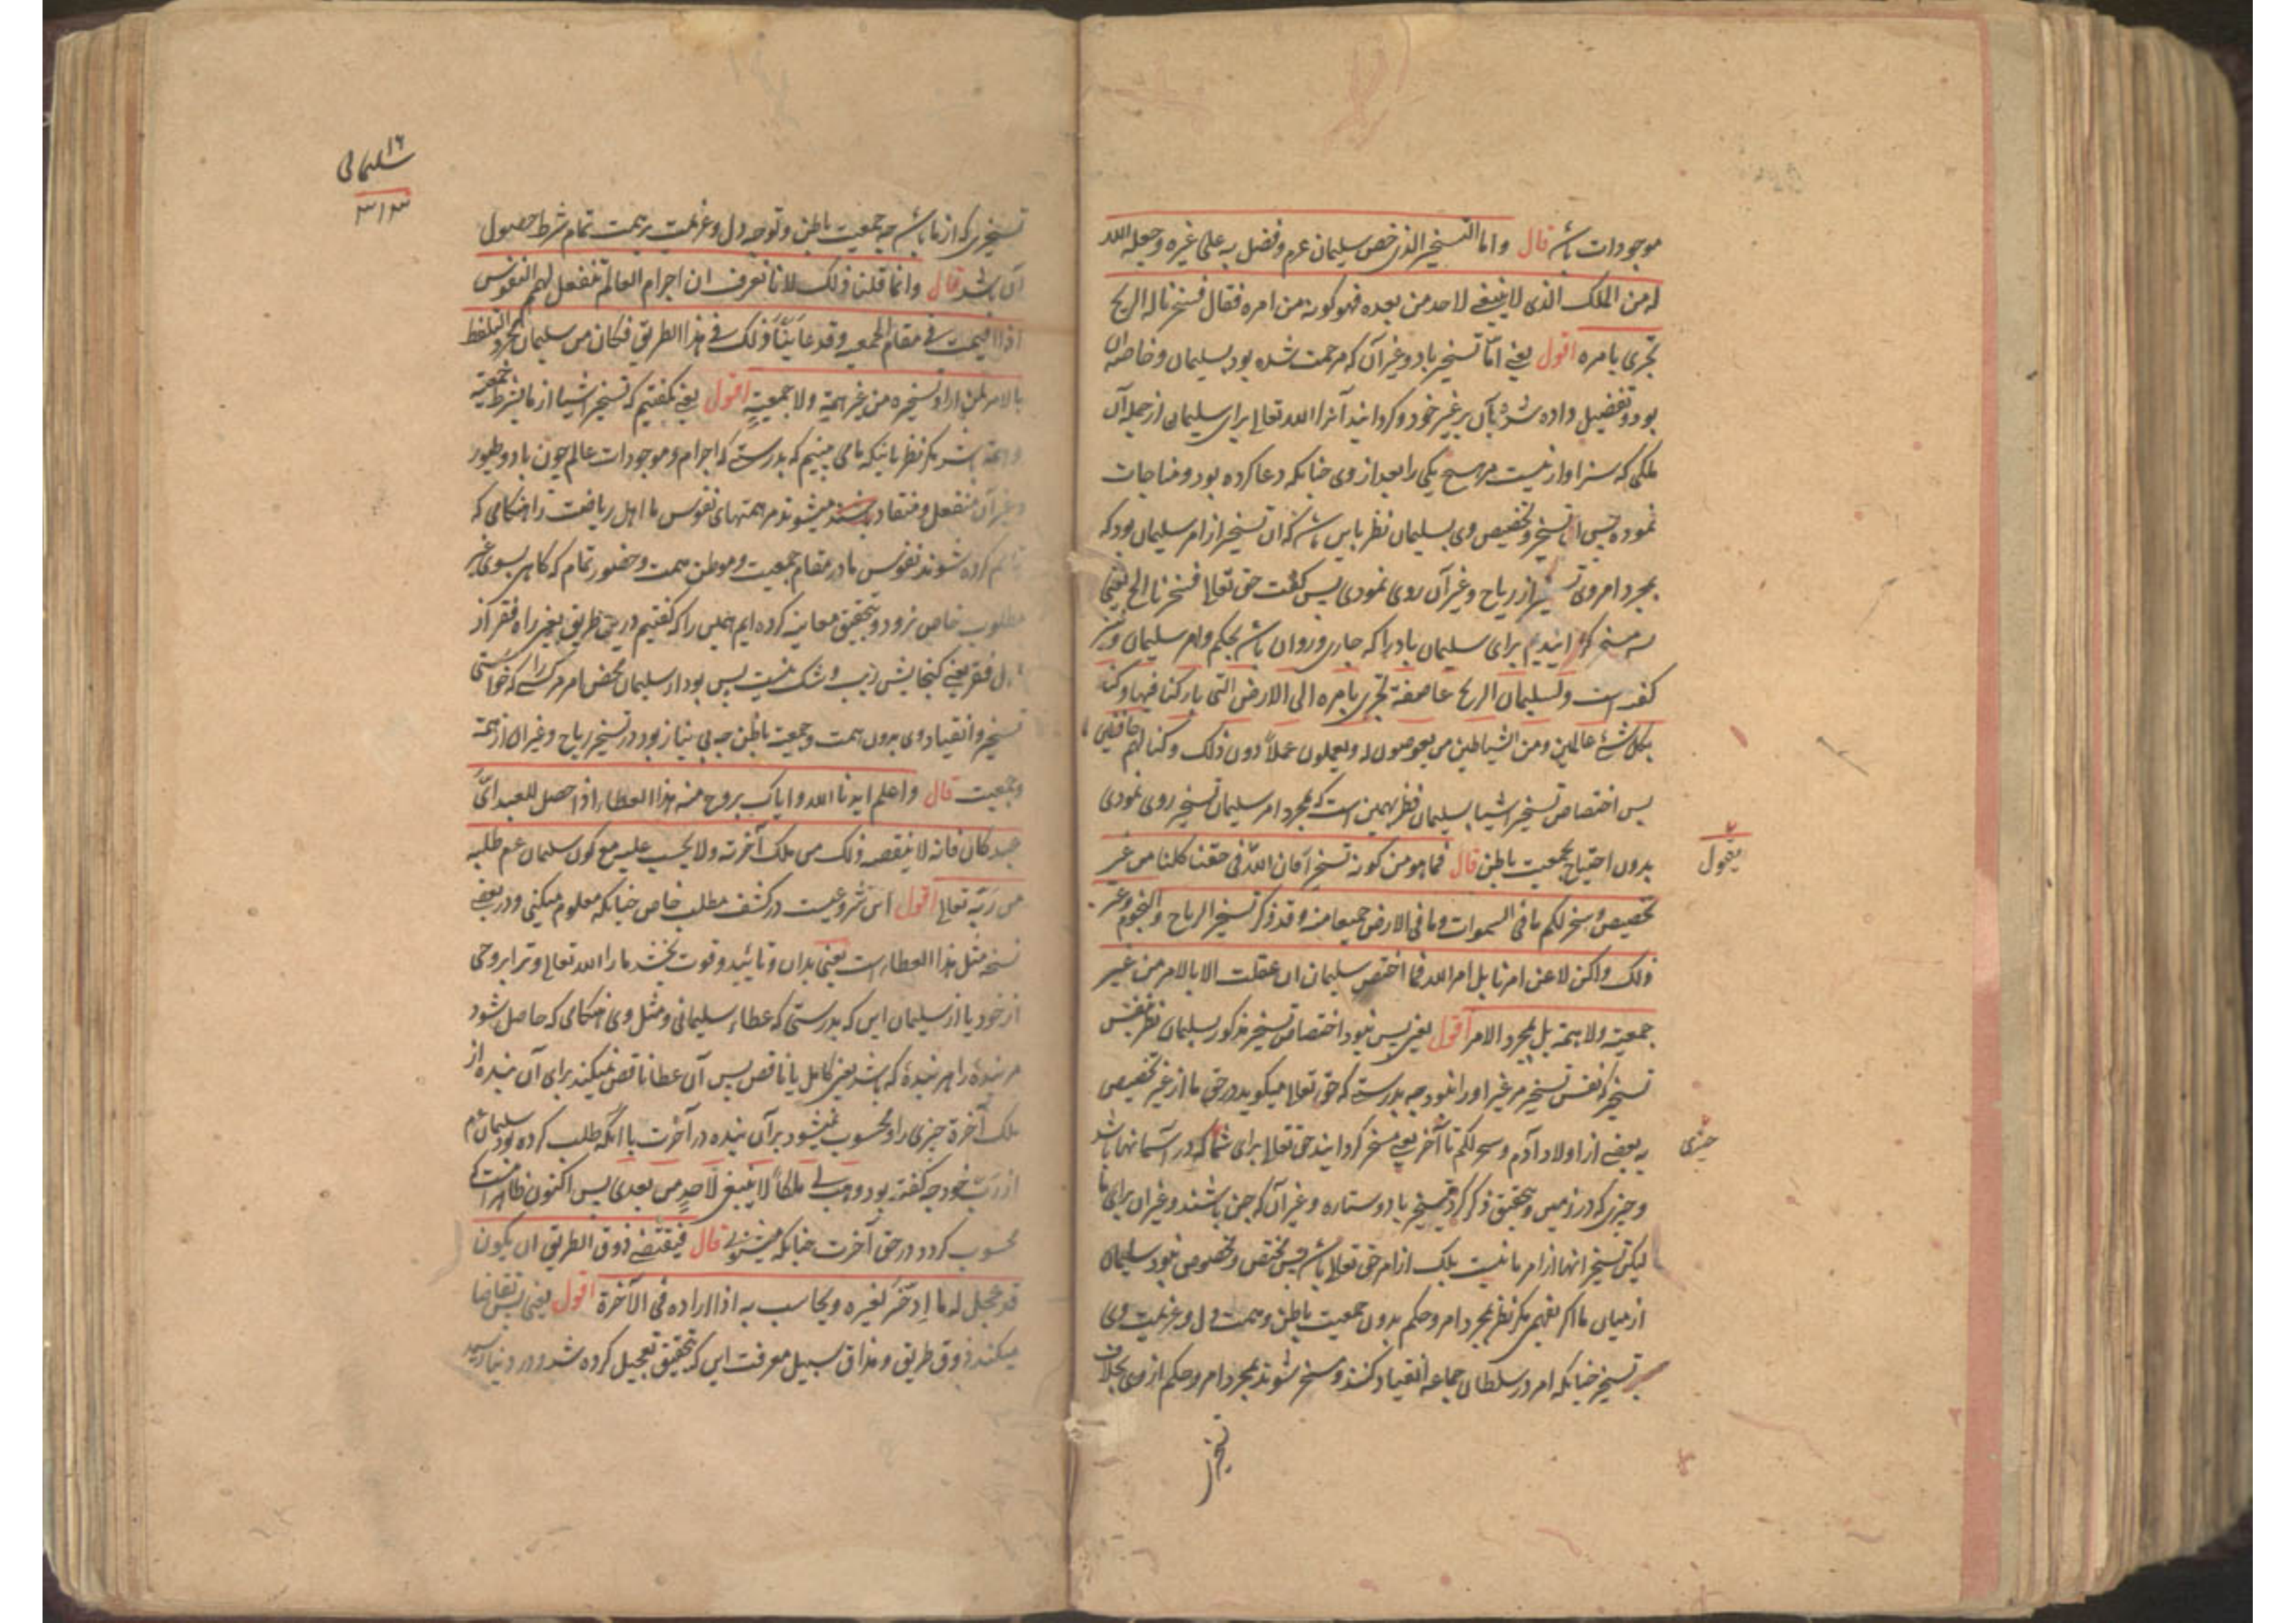 موجودات باشد قال واما التسخیر الذی خص سلیمان عم وفضل به علی غیره وجعله الله
له من الملک الذی لا ینبغی لاحد من بعده فهو کونه من امره فقال فسخرنا له الریح
تجری بامره اقول یعنی امّا تسخیر باد و غیر آن که مرحمت شده بود سلیمان و خاصه آن
بود و تفضیل داده شد بآن بر غیر خود و کردانید آنرا الله تعالی برای سلیمان از جمله آن
ملکی که سزاوار نیست مر هیچ یکی را بعد از وی چنانکه دعا کرده بود و مناجات
نموده پس آن تسخیر و تخصیص وی بسلیمان نظر باین باشد که آن تسخیر از امر سلیمان بود که
بمجرد امر وی تسخیر از ریاح و غیر آن روی نمودی پس کفت حق تعالی فسخرنا الخ یعنی
پس مسخر کردانیدیم برای سلیمان باد را که جاری و روان باشد بحکم و امر سلیمان و نیز
کفته است ولسلیمان الریح عاصفة تجری بامره الی الارض التی بارکنا فیها وکنا
بکل شئ عالمین ومن الشیاطین من یغوصون له ویعملون عملاً دون ذلک وکنا لهم حافظین
پس اختصاص تسخیر اشیا بسلیمان نظر بهمین است که بمجرد امر سلیمان تسخیر روی نمودی
بدون احتیاج بجمعیت باطن قال فما هو من کونه تسخیرا فان الله فی حقنا کلنا من غیر
یقول
تخصیص وسخر لکم ما فی السموات وما فی الارض جمیعا منه وقد ذکر تسخیر الریاح والنجوم وغیر
ذلک ولکن لا عن امرنا بل امر الله فما اختص سلیمان ان عقلت الا بالامر من غیر
جمعیة ولا همة بل بمجرد الامر اقول یعنی پس نبود اختصاص تسخیر مذکور بسلیمان نظر بنفس
تسخیر که نفس تسخیر مر غیر او را نبود چه بدرستی که حق تعالی میکوید در حق ما از غیر تخصیص
به بعضی از اولاد آدم وسخر لکم تا آخر یعنی مسخر کردانید حق تعالی برای شما که در آسمانها باشد
چیزی
و چیزی که در زمین و بتحقیق ذکر کرد تسخیر باد و ستاره و غیر آن که جن باشند و غیر آن برای ما
لیکن تسخیر آنها از امر ما نیست بلک از امر حق تعالی باشد پس مختص و مخصوص نبود سلیمان
از میان ما اکر بفهمی مکر نظر بمجرد امر و حکم بدون جمعیت باطن و همت دل و عزیمت وی
بر تسخیر چنانکه امر در سلطان جماعه انقیاد کنند و مسخر شوند بمجرد امر و حکم از وی بخلاف
تسخیر
۱۶
سلیمانی
۳۱۳
تسخیری که از ما باشد چه جمعیت باطن و توجه دل و عزیمت بر همت تمام شرط حصول
آن باشد قال وانما قلنا ذلک لانا نعرف ان اجرام العالم تنفعل لهمم النفوس
اذا اقیمت فی مقام الجمعیة وقد عاینا ذلک فی هذا الطریق فکان من سلیمان مجرد التلفظ
بالامر لمن اراد تسخیره من غیر همة ولا جمعیة اقول یعنی نکفتیم که تسخیر اشیا از ما بشرط جمعیة
و همة باشد مکر نظر باینکه ما می بینیم که بدرستی که اجرام و موجودات عالم چون باد و طیور
و غیر آن منفعل و منقاد میشوند مر همتهای نفوس ما اهل ریاضت را هنکامی که
قایم کرده شوند نفوس ما در مقام جمعیت و موطن همت و حضور تمام که کاهی بسوی غیر
مطلوب خاص نرود و بتحقیق معاینه کرده ایم همین را که کفتیم درین طریق یعنی راه فقر از
اهل فقر یعنی کنجایش ریب و شک نیست پس بود از سلیمان محض امر مر کسی را که خواستی
تسخیر و انقیاد وی بدون همت و جمعیت باطن چه بی نیاز بود در تسخیر ریاح و غیر آن از همة
وجمعیت قال واعلم ایدنا الله وایاک بروح منه هذا العطاء اذا حصل للعبد ایّ
عبد کان فانه لا ینقصه ذلک من ملک آخرته ولا یحسب علیه مع کون سلیمان عم طلبه
من ربّه تعالی اقول این شروعیست در کشف مطلب خاص چنانکه معلوم میکنی و در بعضی
نسخه مثل هذا العطاء است یعنی بدان و تایید و قوت بخشد ما را الله تعالی و ترا بروحی
از خود یا از سلیمان این که بدرستی که عطاء سلیمانی و مثل وی هنکامی که حاصل شود
مر بنده را هر بندهٔ که باشد یعنی کامل یا ناقص پس آن عطا ناقص نمیکند برای آن بنده از
ملک آخرة چیزی را و محسوب نمیشود بر آن بنده در آخرت با آنکه طلب کرده بود سلیمان عم
از ربّ خود چه کفته بود وهب لی ملکاً لا ینبغی لاحدٍ من بعدی پس اکنون ظاهر است که
محسوب کردد در حق آخرت چنانکه میشنوی قال فیقتضی ذوق الطریق ان یکون
قد عجل له ما ادّخر لغیره ویحاسب به اذا اراده فی الآخرة اقول یعنی پس تقاضا
میکند ذوق طریق و مذاق سبیل معرفت این که بتحقیق تعجیل کرده شد و در دنیا رسید